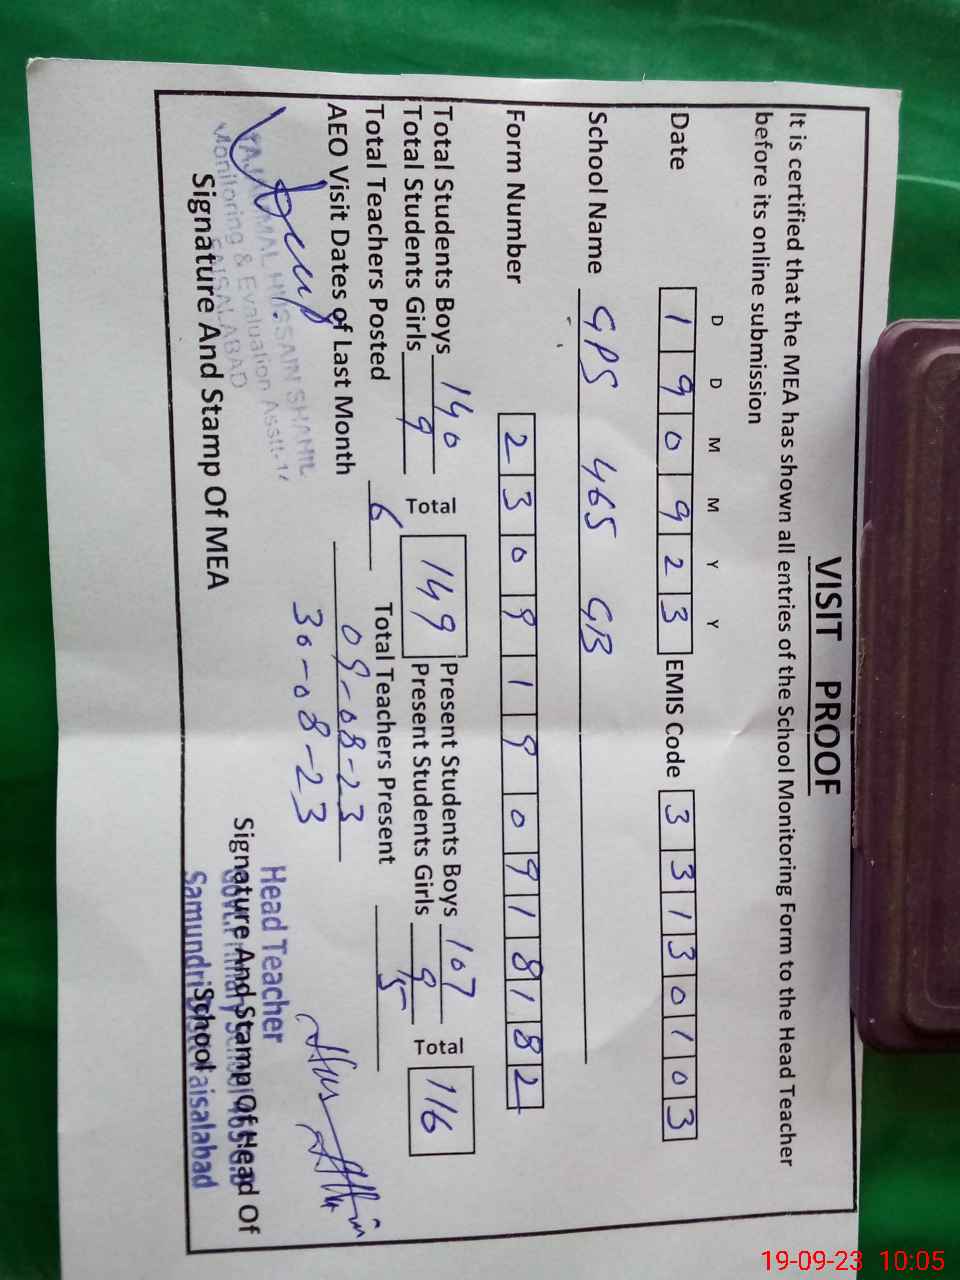 VISIT PROOF
It is certified that the MEA has shown all entries of the School Monitoring Form to the Head Teacher
before its online submission
D D M M Y Y
Date 190923 EMIS Code 33130103
School Name GPS 465 GB
Form Number 2309190918182
Total Students Boys 140 Total 149 Present Students Boys 107 Total 116
Total Students Girls 9 Present Students Girls 9
Total Teachers Posted 6 Total Teachers Present 5
AEO Visit Dates of Last Month 09-08-23
30-08-23
HUSSAIN SHAHIL
Monitoring & Evaluation Asstt-
FAISALABAD
Signature And Stamp Of MEA
Head Teacher
Govt. Primary School 465 G.B
Samundri Faisalabad
Signature And Stamp Of Head Of
School
19-09-23 10:05